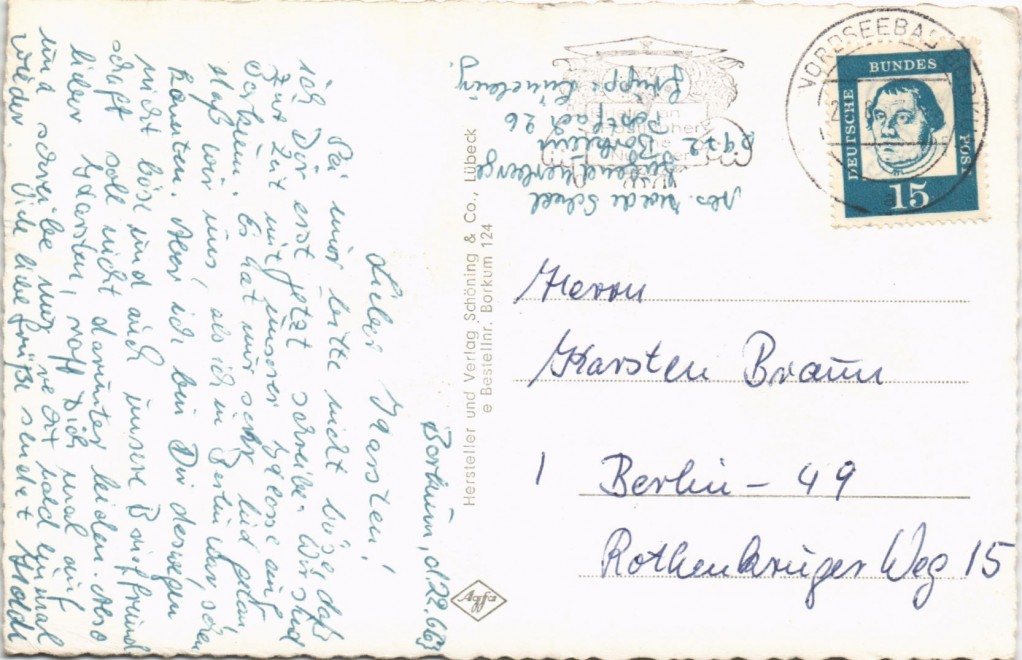 Borkum, d. 22.6.63
Lieber Karsten!
Sei mir bitte nicht böse, daß
ich Dir erst jetzt schreibe. Wir sind
zur Zeit mit unserer Klasse auf
Borkum. Es hat mir sehr leid getan,
daß wir uns, als ich in Berlin war, sehen
konnten. Aber ich bin Dir deswegen
nicht böse und auch unsere Brieffreund
schaft soll nicht darunter leiden. Also
lieber Karsten, raff Dich mal auf
und schreibe mir recht bald einmal
wieder. Viele liebe Grüße sendet
Abs.
Jugendherberge
2972 Borkum
Postfach 26
Gruppe Lüneburg.
Hersteller und Verlag Schöning & Co., Lübeck
e Bestellnr. Borkum 124
Agfa
NORDSEEBAD BORKUM
DEUTSCHE BUNDESPOST
15
Herrn
Karsten Braun
1 Berlin - 49
Rothenkruger Weg 15